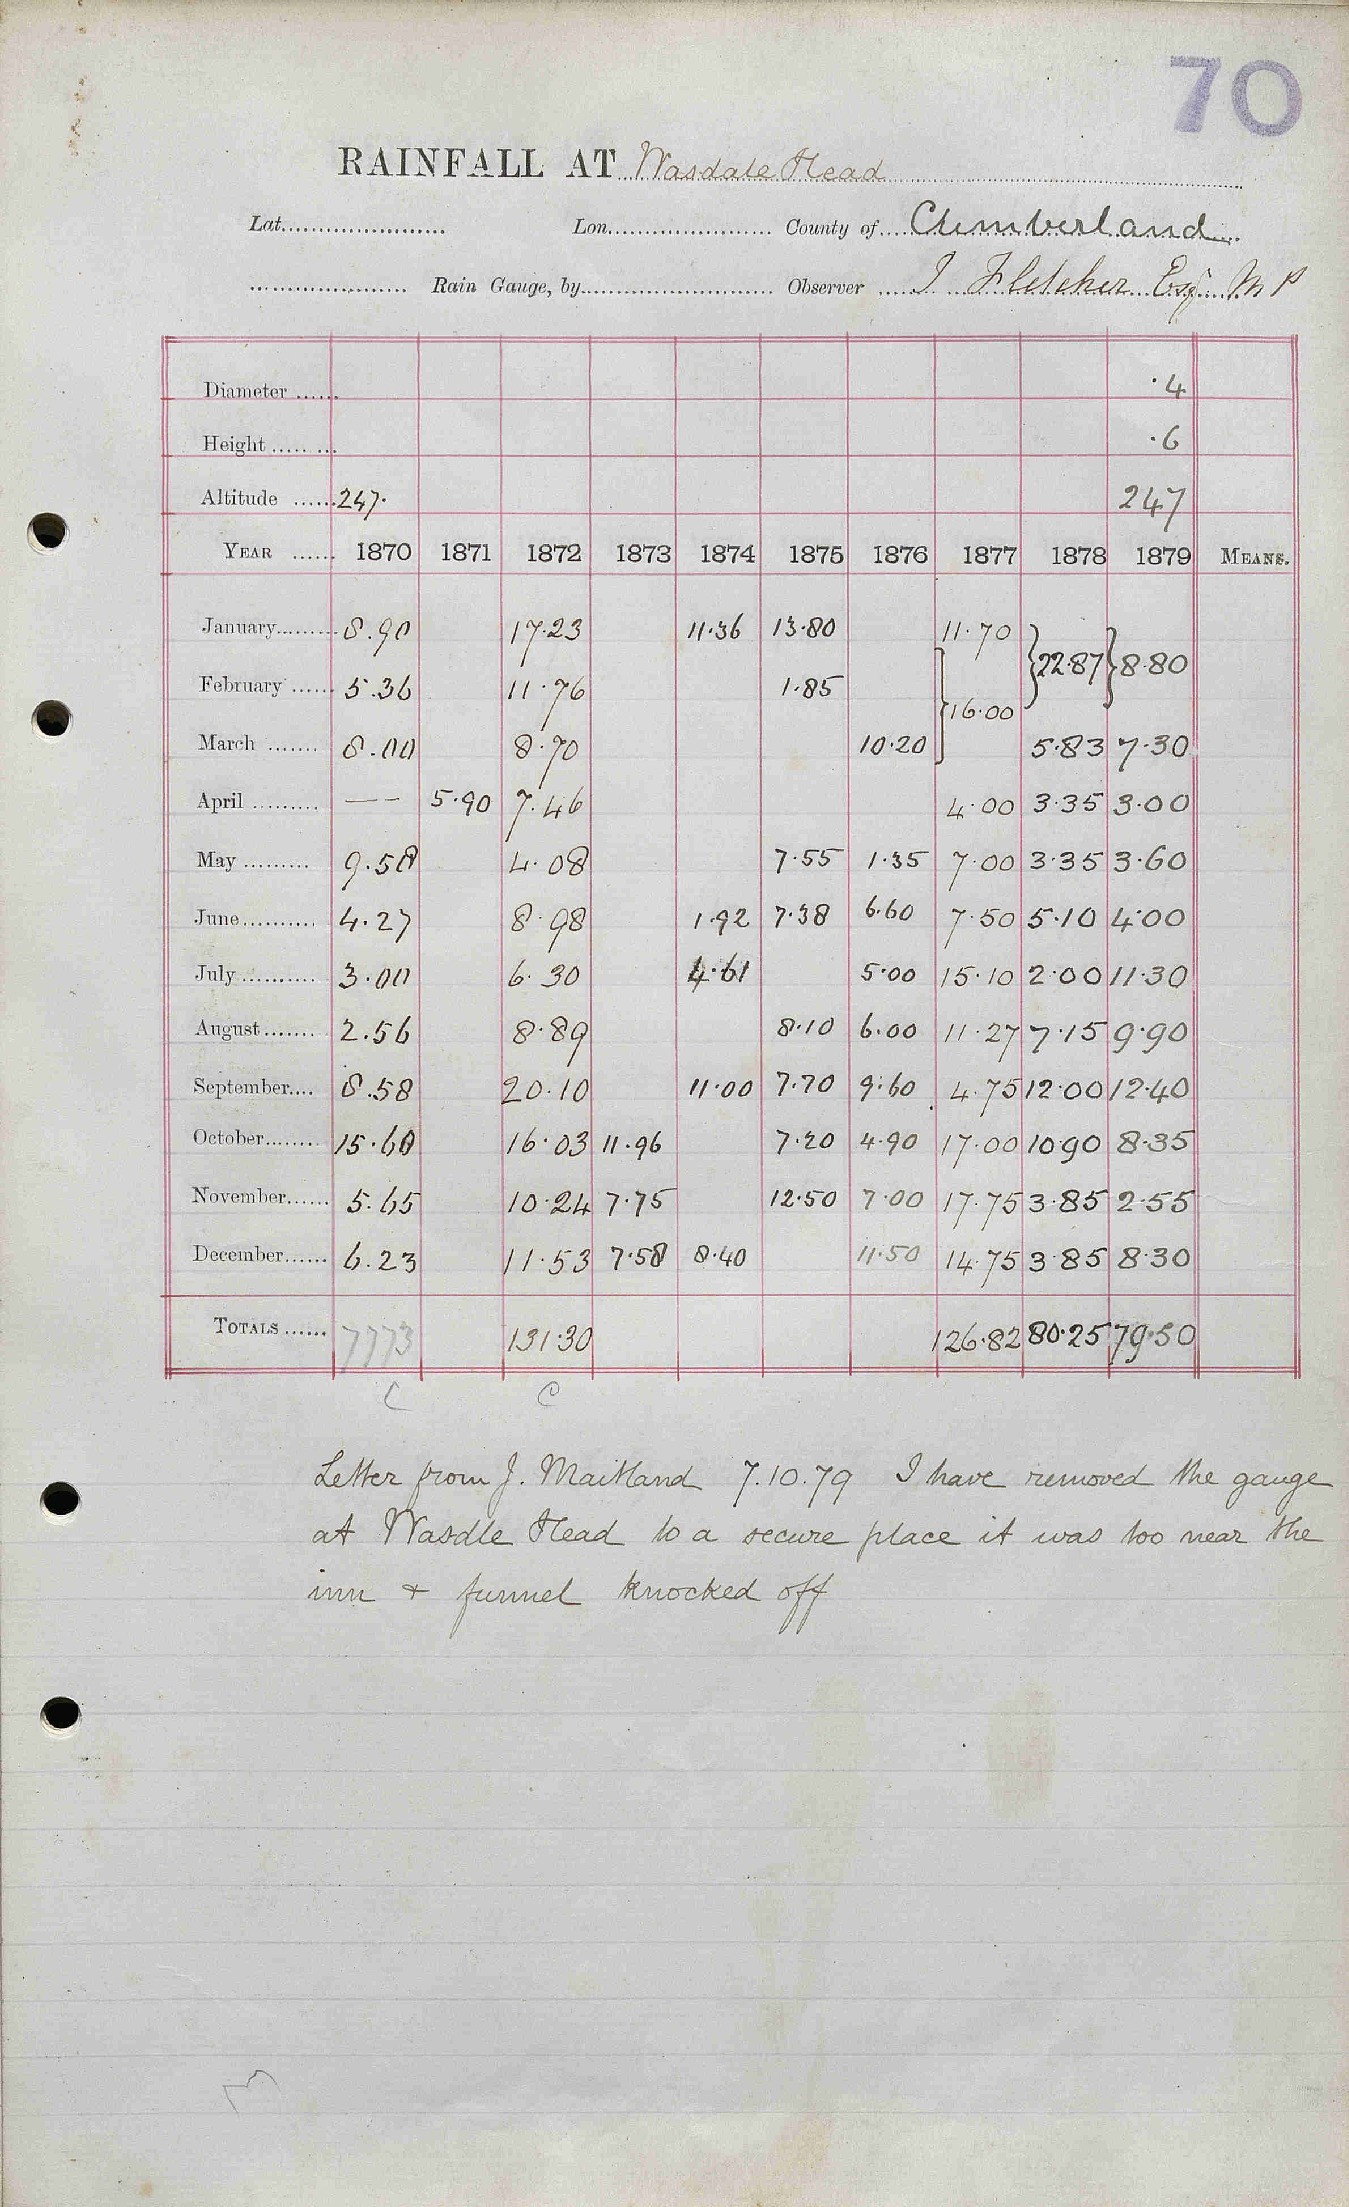 70
RAINFALL AT Wasdale Head
Lat...................... Lon...................... County of.... Cumberland
..................... Rain Gauge, by.......................... Observer .... I Fletcher Esqr M P
Diameter ...... ·4
Height ..... ... ·6
Altitude ...... 247· 247
YEAR ...... 1870 1871 1872 1873 1874 1875 1876 1877 1878 1879 MEANS.
January......... 8.90 17·23 11·36 13·80 11·70 } 22·87 } 8·80
February ...... 5.36 11·76 1·85 { 16·00
March ....... 8.00 8·70 10·20 5·83 7·30
April ......... — — 5·90 7·46 4·00 3·35 3·00
May ......... 9.58 4·08 7·55 1·35 7·00 3·35 3·60
June.......... 4.27 8·98 1·92 7·38 6·60 7·50 5·10 4·00
July .......... 3.00 6·30 4·61 5·00 15·10 2·00 11·30
August....... 2.56 8·89 8·10 6·00 11·27 7·15 9·90
September.... 8.58 20·10 11·00 7·70 9·60 4·75 12·00 12·40
October....... 15.60 16·03 11·96 7·20 4·90 17·00 10·90 8·35
November...... 5.65 10·24 7·75 12·50 7·00 17·75 3·85 2·55
December...... 6.23 11·53 7·58 8·40 11·50 14·75 3·85 8·30
TOTALS ...... 7773 131·30 126·82 80·25 79·50
C C
Letter from J. Maitland 7.10.79 I have removed the gauge
at Wasdle Head to a secure place it was too near the
inn + funnel knocked off